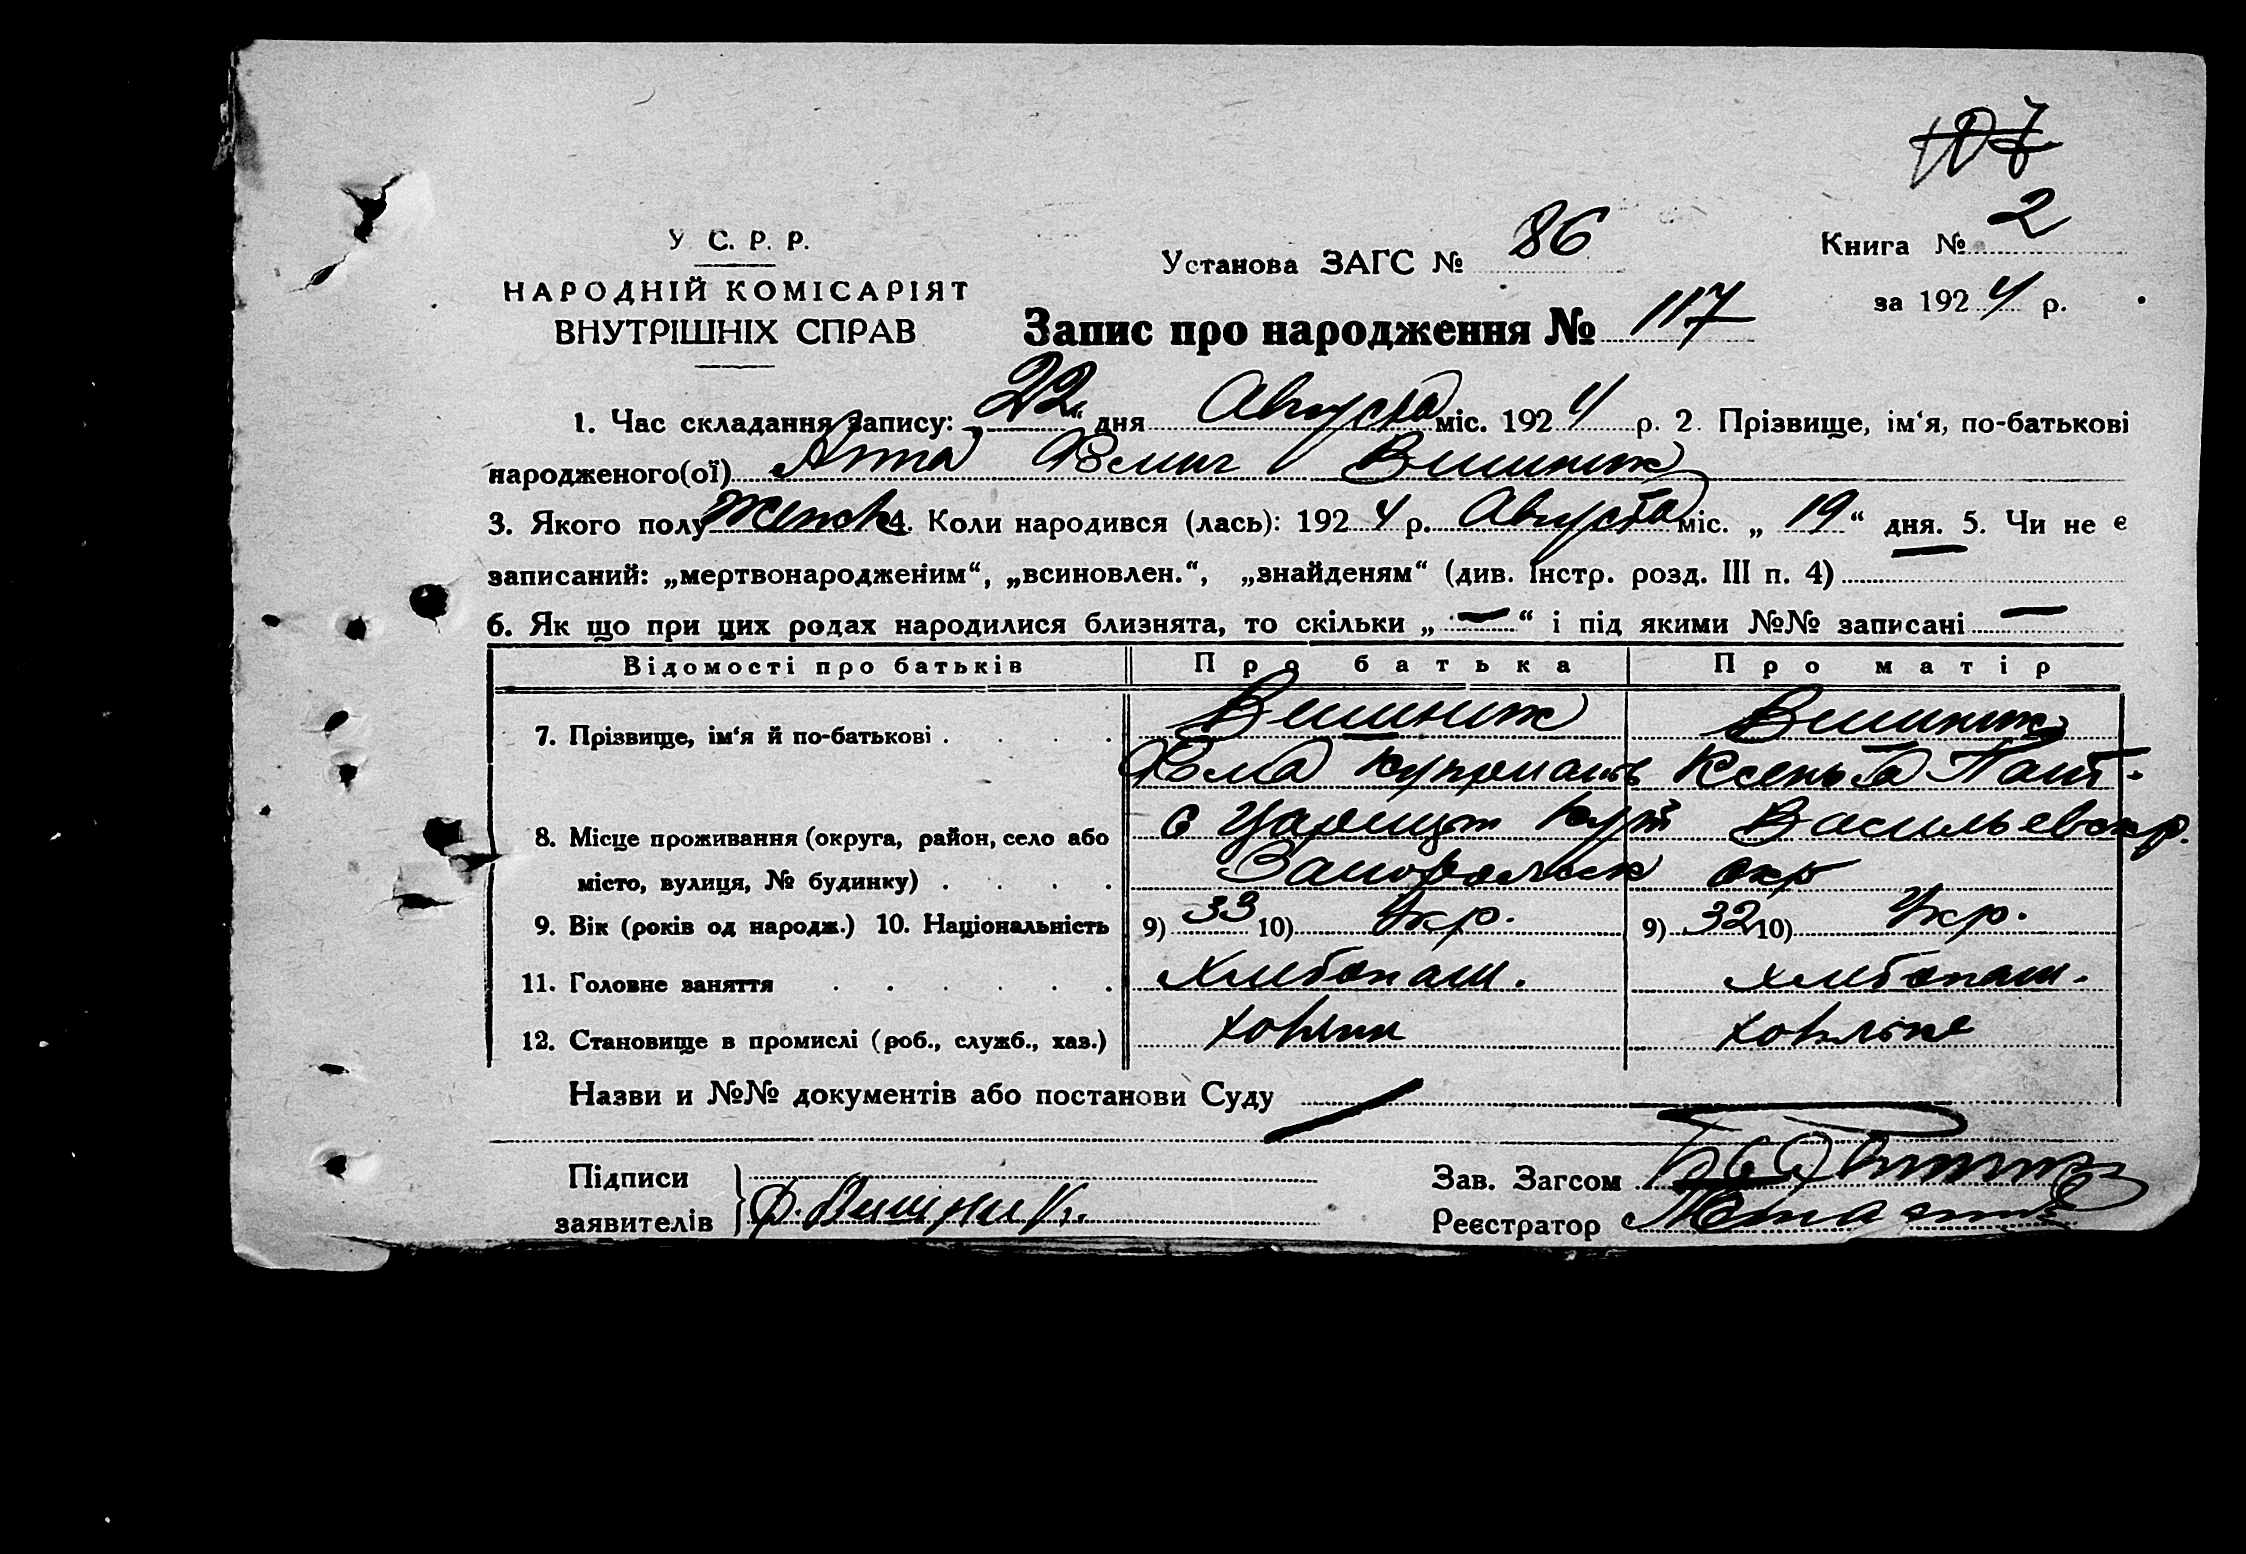 107
У С. Р. Р.
НАРОДНІЙ КОМІСАРІЯТ
ВНУТРІШНІХ СПРАВ
Установа ЗАГС № 86
Книга № 2
за 1924 р.
Запис про народження № 117
1. Час складання запису: „22“ дня Августа міс. 1924 р. 2. Прізвище, ім‘я, по-батькові
народженого(ої) Анна Вишник
3. Якого полу женск 4. Коли народився (лась): 1924 р. Августа міс. „19“ дня. 5. Чи не є
записаний: „мертвонародженим“, „всиновлен.“, „знайденям“ (див. Інстр. розд. III п. 4) —
6. Як що при цих родах народилися близнята, то скільки „—“ і під якими №№ записані —
Відомості про батьків Про батька Про матір
7. Прізвище, ім‘я й по-батькові . . . . Вишник Вишник
8. Місце проживання (округа, район, село або Васильевск р.
місто, вулиця, № будинку) . . . . окр
9. Вік (років од народж.) 10. Національність 9) 33 10) Укр. 9) 32 10) Укр.
11. Головне заняття . . . . . . Хлибопаш. хлибопаш.
12. Становище в промислі (роб., служб., хаз.)
Назви и №№ документів або постанови Суду
Підписи Зав. Загсом
заявителів Ф. Вишник. Реєстратор